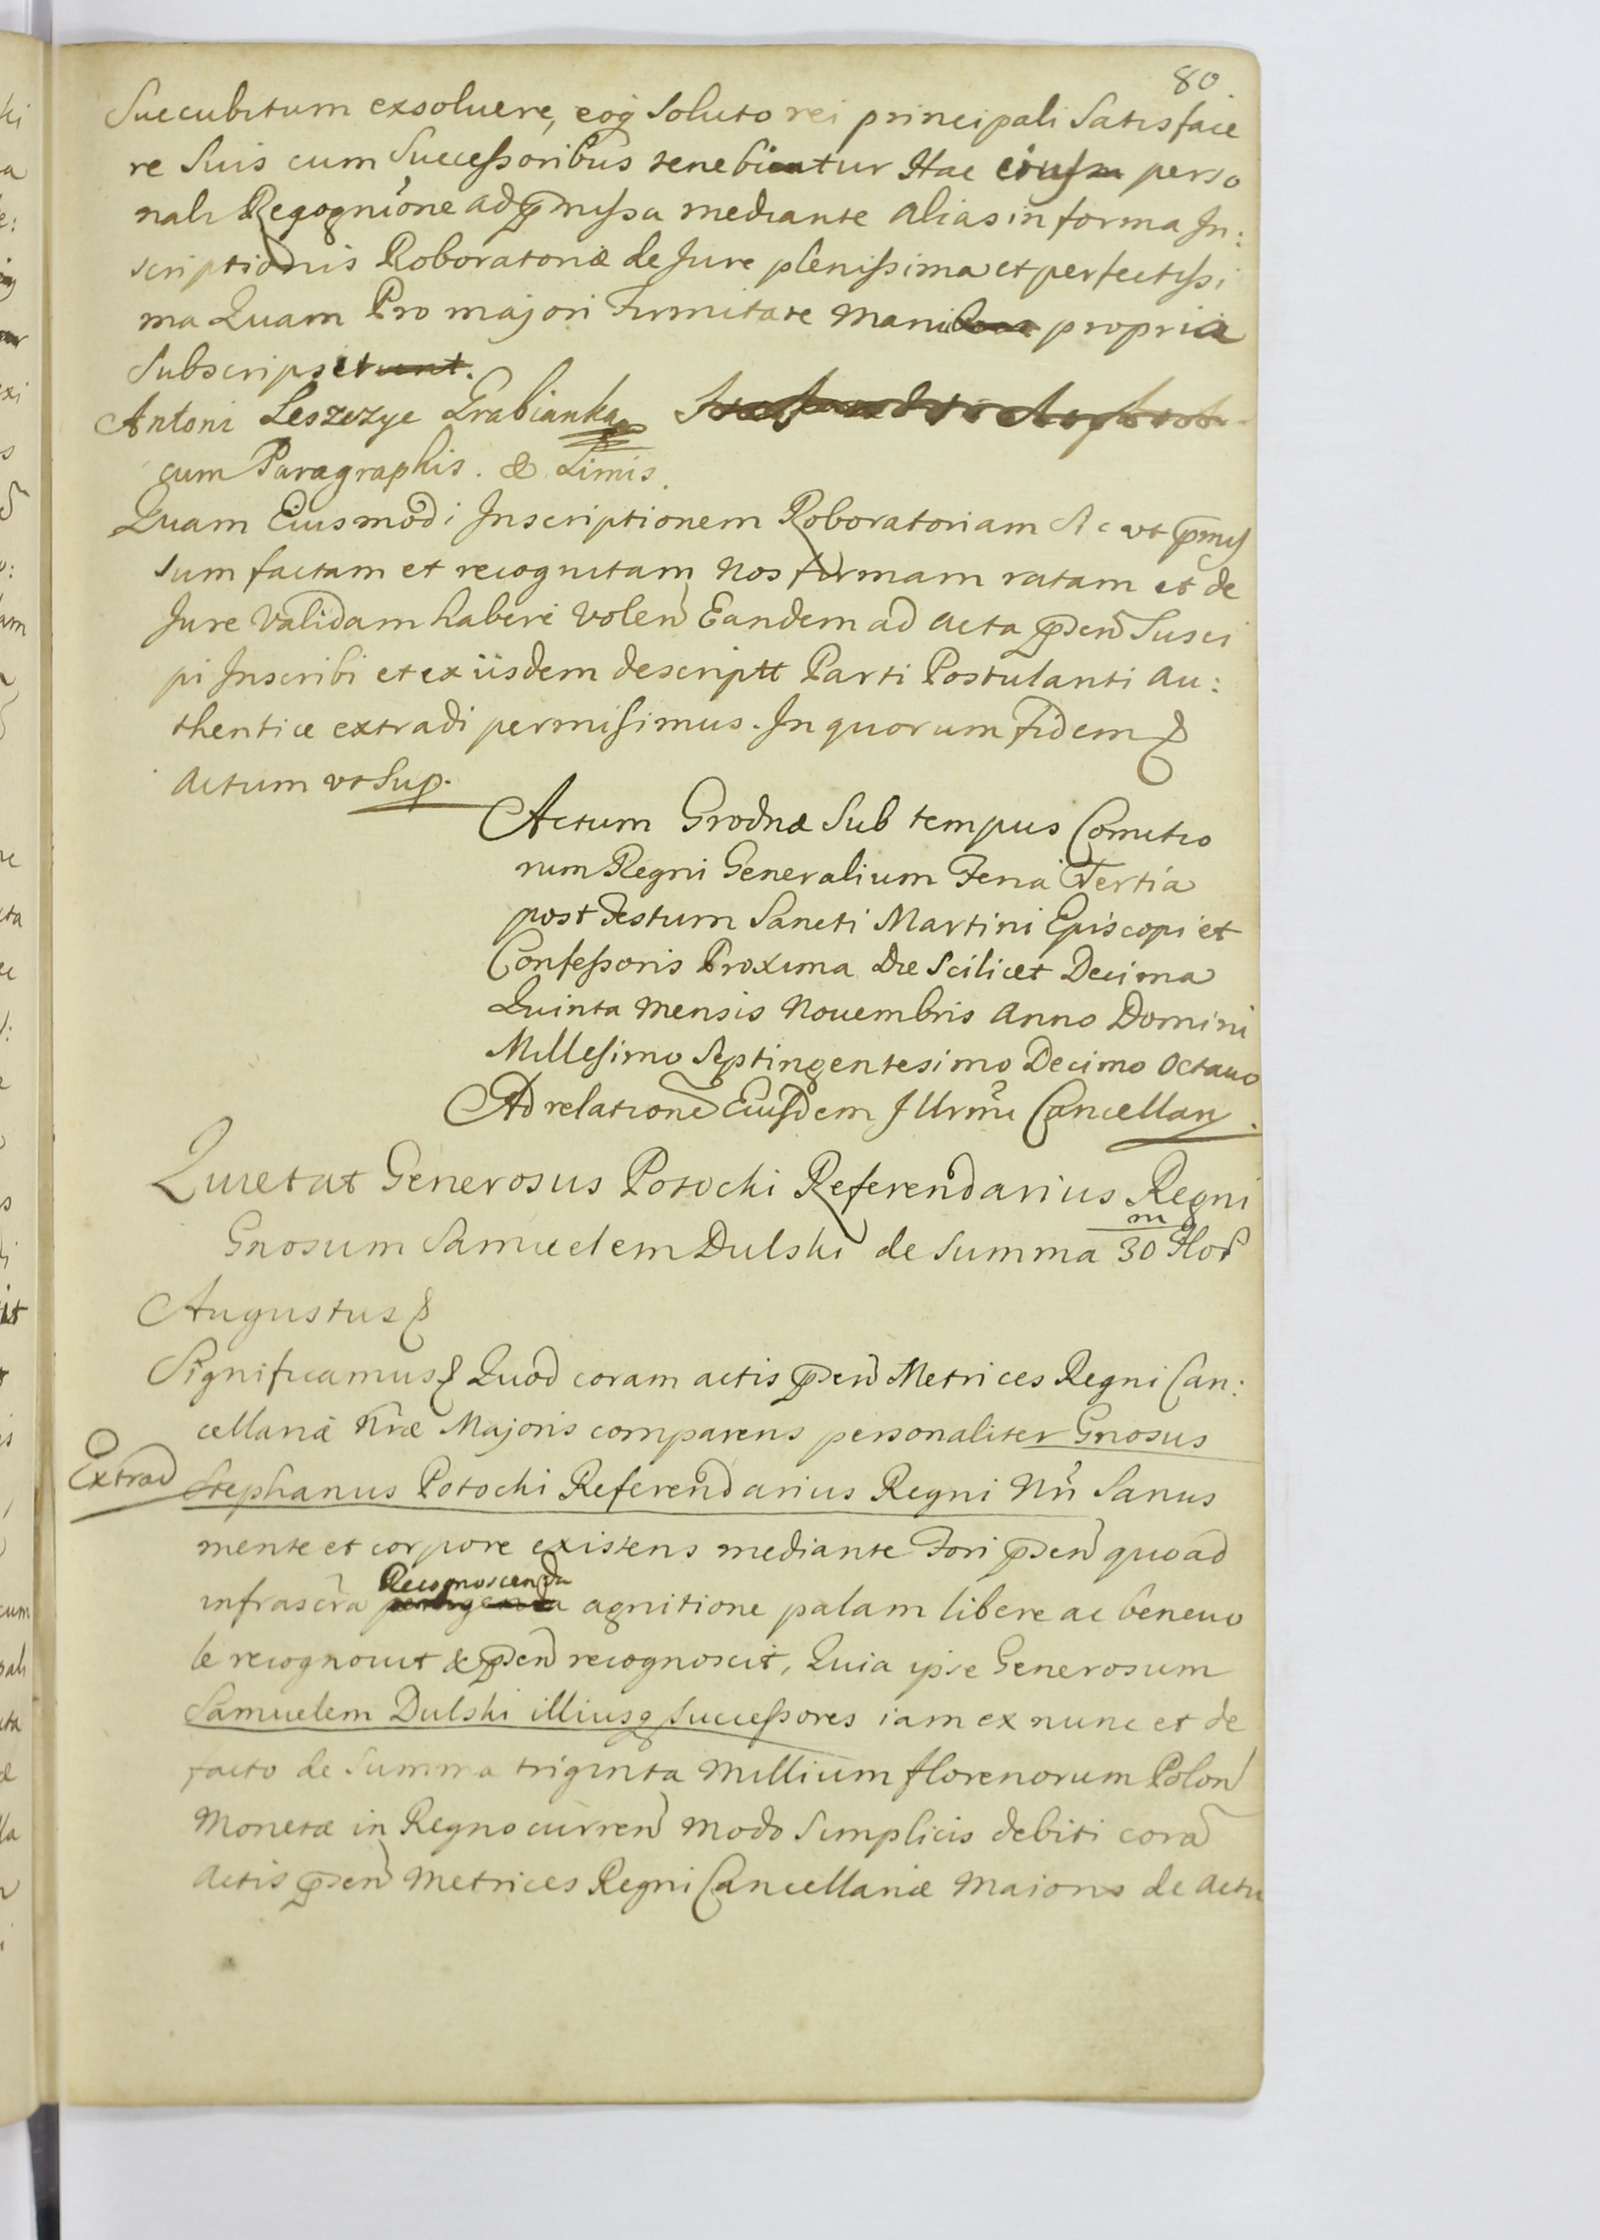 80
Succubitum exsoluere, eoq soluto rei principali Satisface
re Suis cum Successoribus tenebitur Hac eius perso
nali Regognĩone ad p̃missa mediante alias in forma In:
scriptionis Roboratoriæ de Jure plenissima et perfectissi
ma Quam Pro majori Firmitate manu propria
Subscripsit.
Antoni Leszczyc Grabianka
cum Paragraphis. & Limis.
Quam Eiusmodi Inscriptionem Roboratoriam Ac vt p̃mis
sum factam et recognitam nos firmam ratam et de
Jure Validam habere volen Eandem ad acta p̃sen Susci
pi Inscribi et ex iisdem descriptt Parti Postulanti au:
thentice extradi permisimus. In quorum fidem &
actum vt Sup.
Actum Grodnæ Sub tempus Comitio
rum Regni Generalium Feria Tertia
post Festum Sancti Martini Episcopi et
Confessoris Proxima die Scilicet Decima
Quinta mensis Nouembris anno Domini
Millesimo Septingentesimo Decimo Octauo
Ad relationẽ Eiusdem Illrmi Cancellarij.
Quietat Generosus Potocki Referendarius Regni
Gnosum Samuelem Dulski de Summa 30 m Flor
Augustus &
Significamus & Quod coram actis p̃sen Metrices Regni Can:
cellariæ Nræ Majoris comparens personaliter Gnosus
Extrad
Stephanus Potocki Referendarius Regni Nri Sanus
mente et corpore existens mediante Fori p̃sen quoad
infrascra Recognoscenda agnitione palam libere ac beneuo
le recognouit & p̃sen recognoscit, Quia ipse Generosum
Samuelem Dulski illiusq Successores iam ex nunc et de
facto de Summa triginta millium florenorum Polon
Monetæ in Regno curren modo Simplicis debiti corã
actis p̃sen Metrices Regni Cancellariæ Maioris de actu